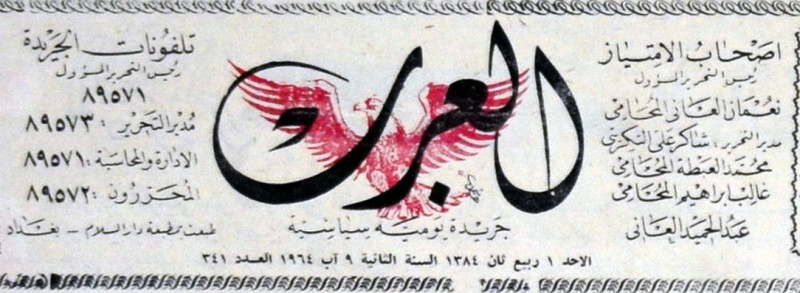 اصحاب الامتياز
رئيس التحرير المسؤول
نعمان العاني المحامي
مدير التحرير : شاكر علي التكريتي
محمد العبطة المحامي
غالب ابراهيم المحامي
عبد الحميد العاني
العرب
جريدة يومية سياسية
تلفونات الجريدة
رئيس التحرير المسؤول
٨٩٥٧١
مدير التحرير : ٨٩٥٧٣
الادارة والمحاسبة : ٨٩٥٧١
المحررون : ٨٩٥٧٢
طبعت بمطبعة دار السلام - بغداد
الاحد ١ ربيع ثان ١٣٨٤ السنة الثانية ٩ آب ١٩٦٤ العدد ٣٤١